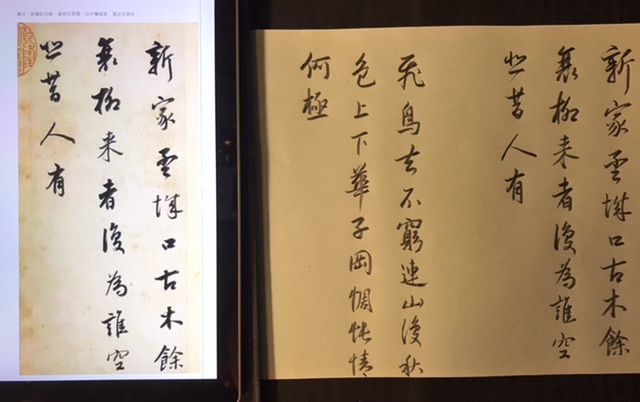 新家孟城口古木餘
衰柳来者復為誰空
悲昔人有
新家孟城口古木餘
衰柳来者復為誰空
悲昔人有
飛鳥去不窮連山復秋
色上下華子岡惆悵情
何極